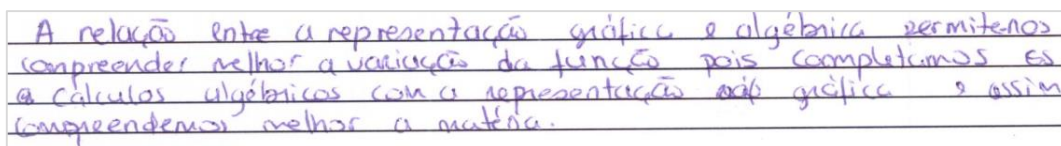 A relação entre a representação gráfica e algébrica permitenos
compreender melhor a variação da função pois completamos os
cálculos algébricos com a representação gráfica e assim
compreendemos melhor a matéria.